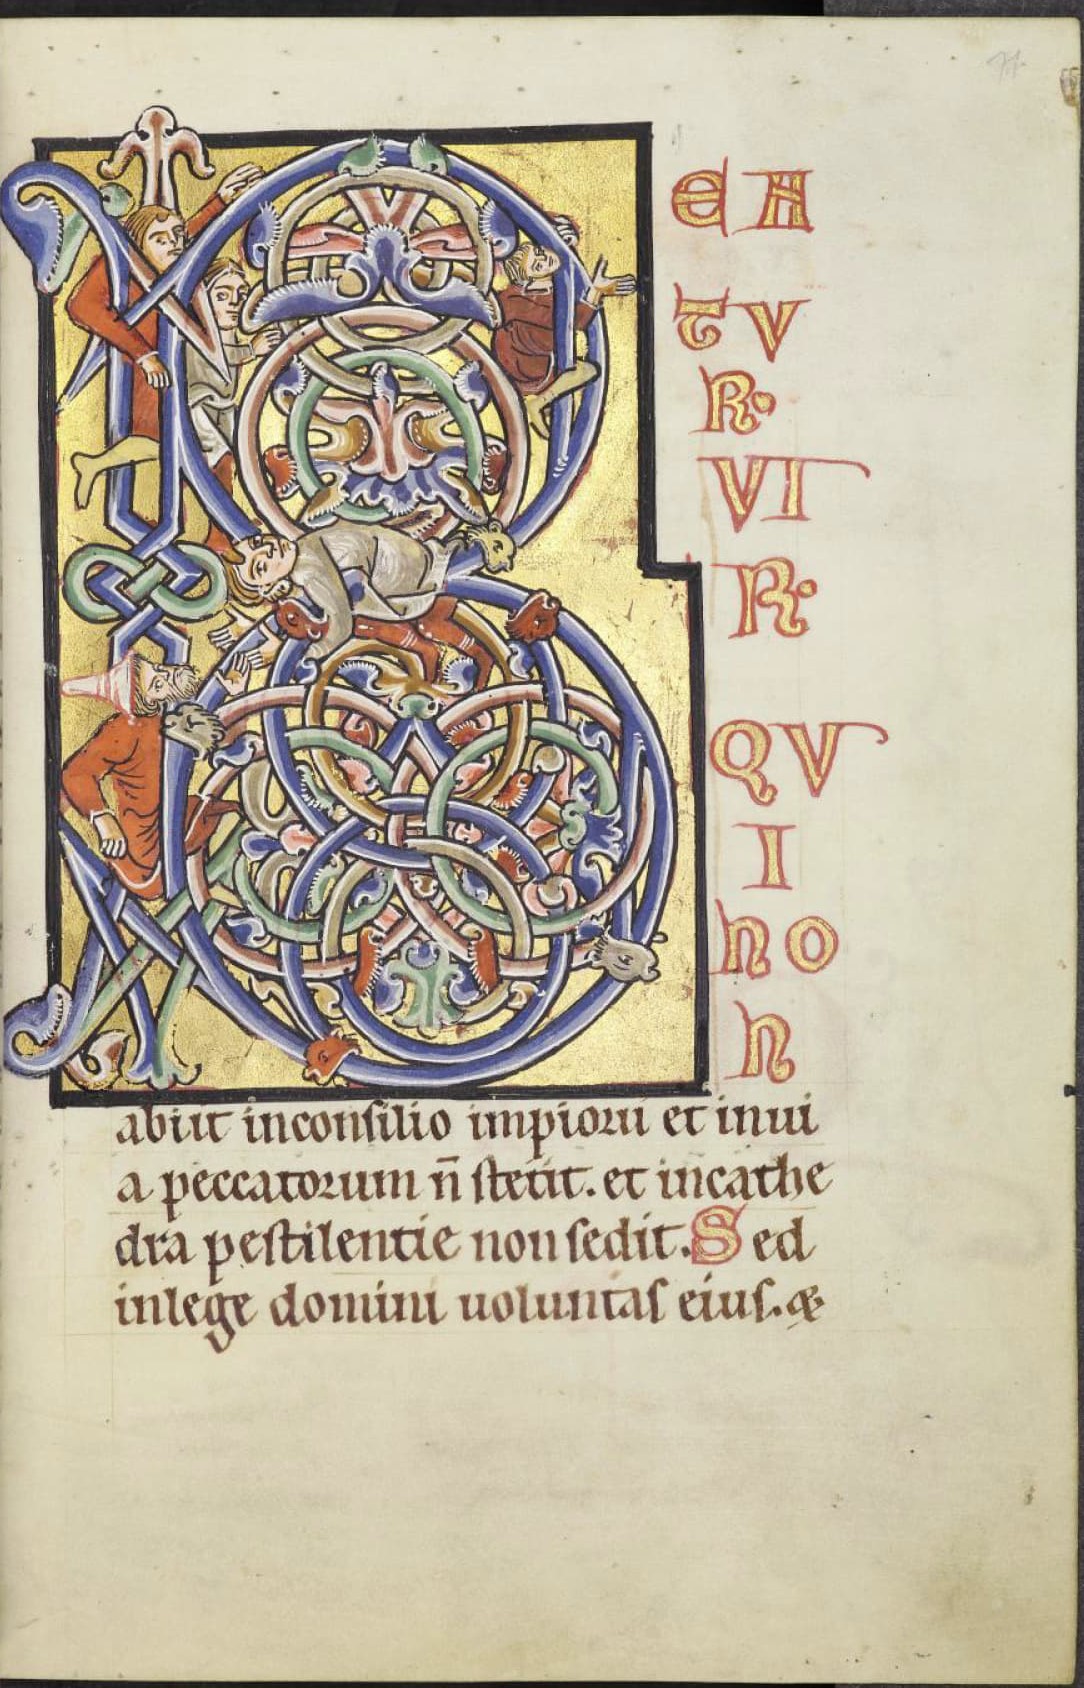 B
EA
TV
R·
VI
R·
QV
I
NO
N
abiit inconsilio impioru et inui
a peccatorum n̄ stetit. et incathe
dra pestilentie non sedit. Sed
inlege domini uoluntas eius. &